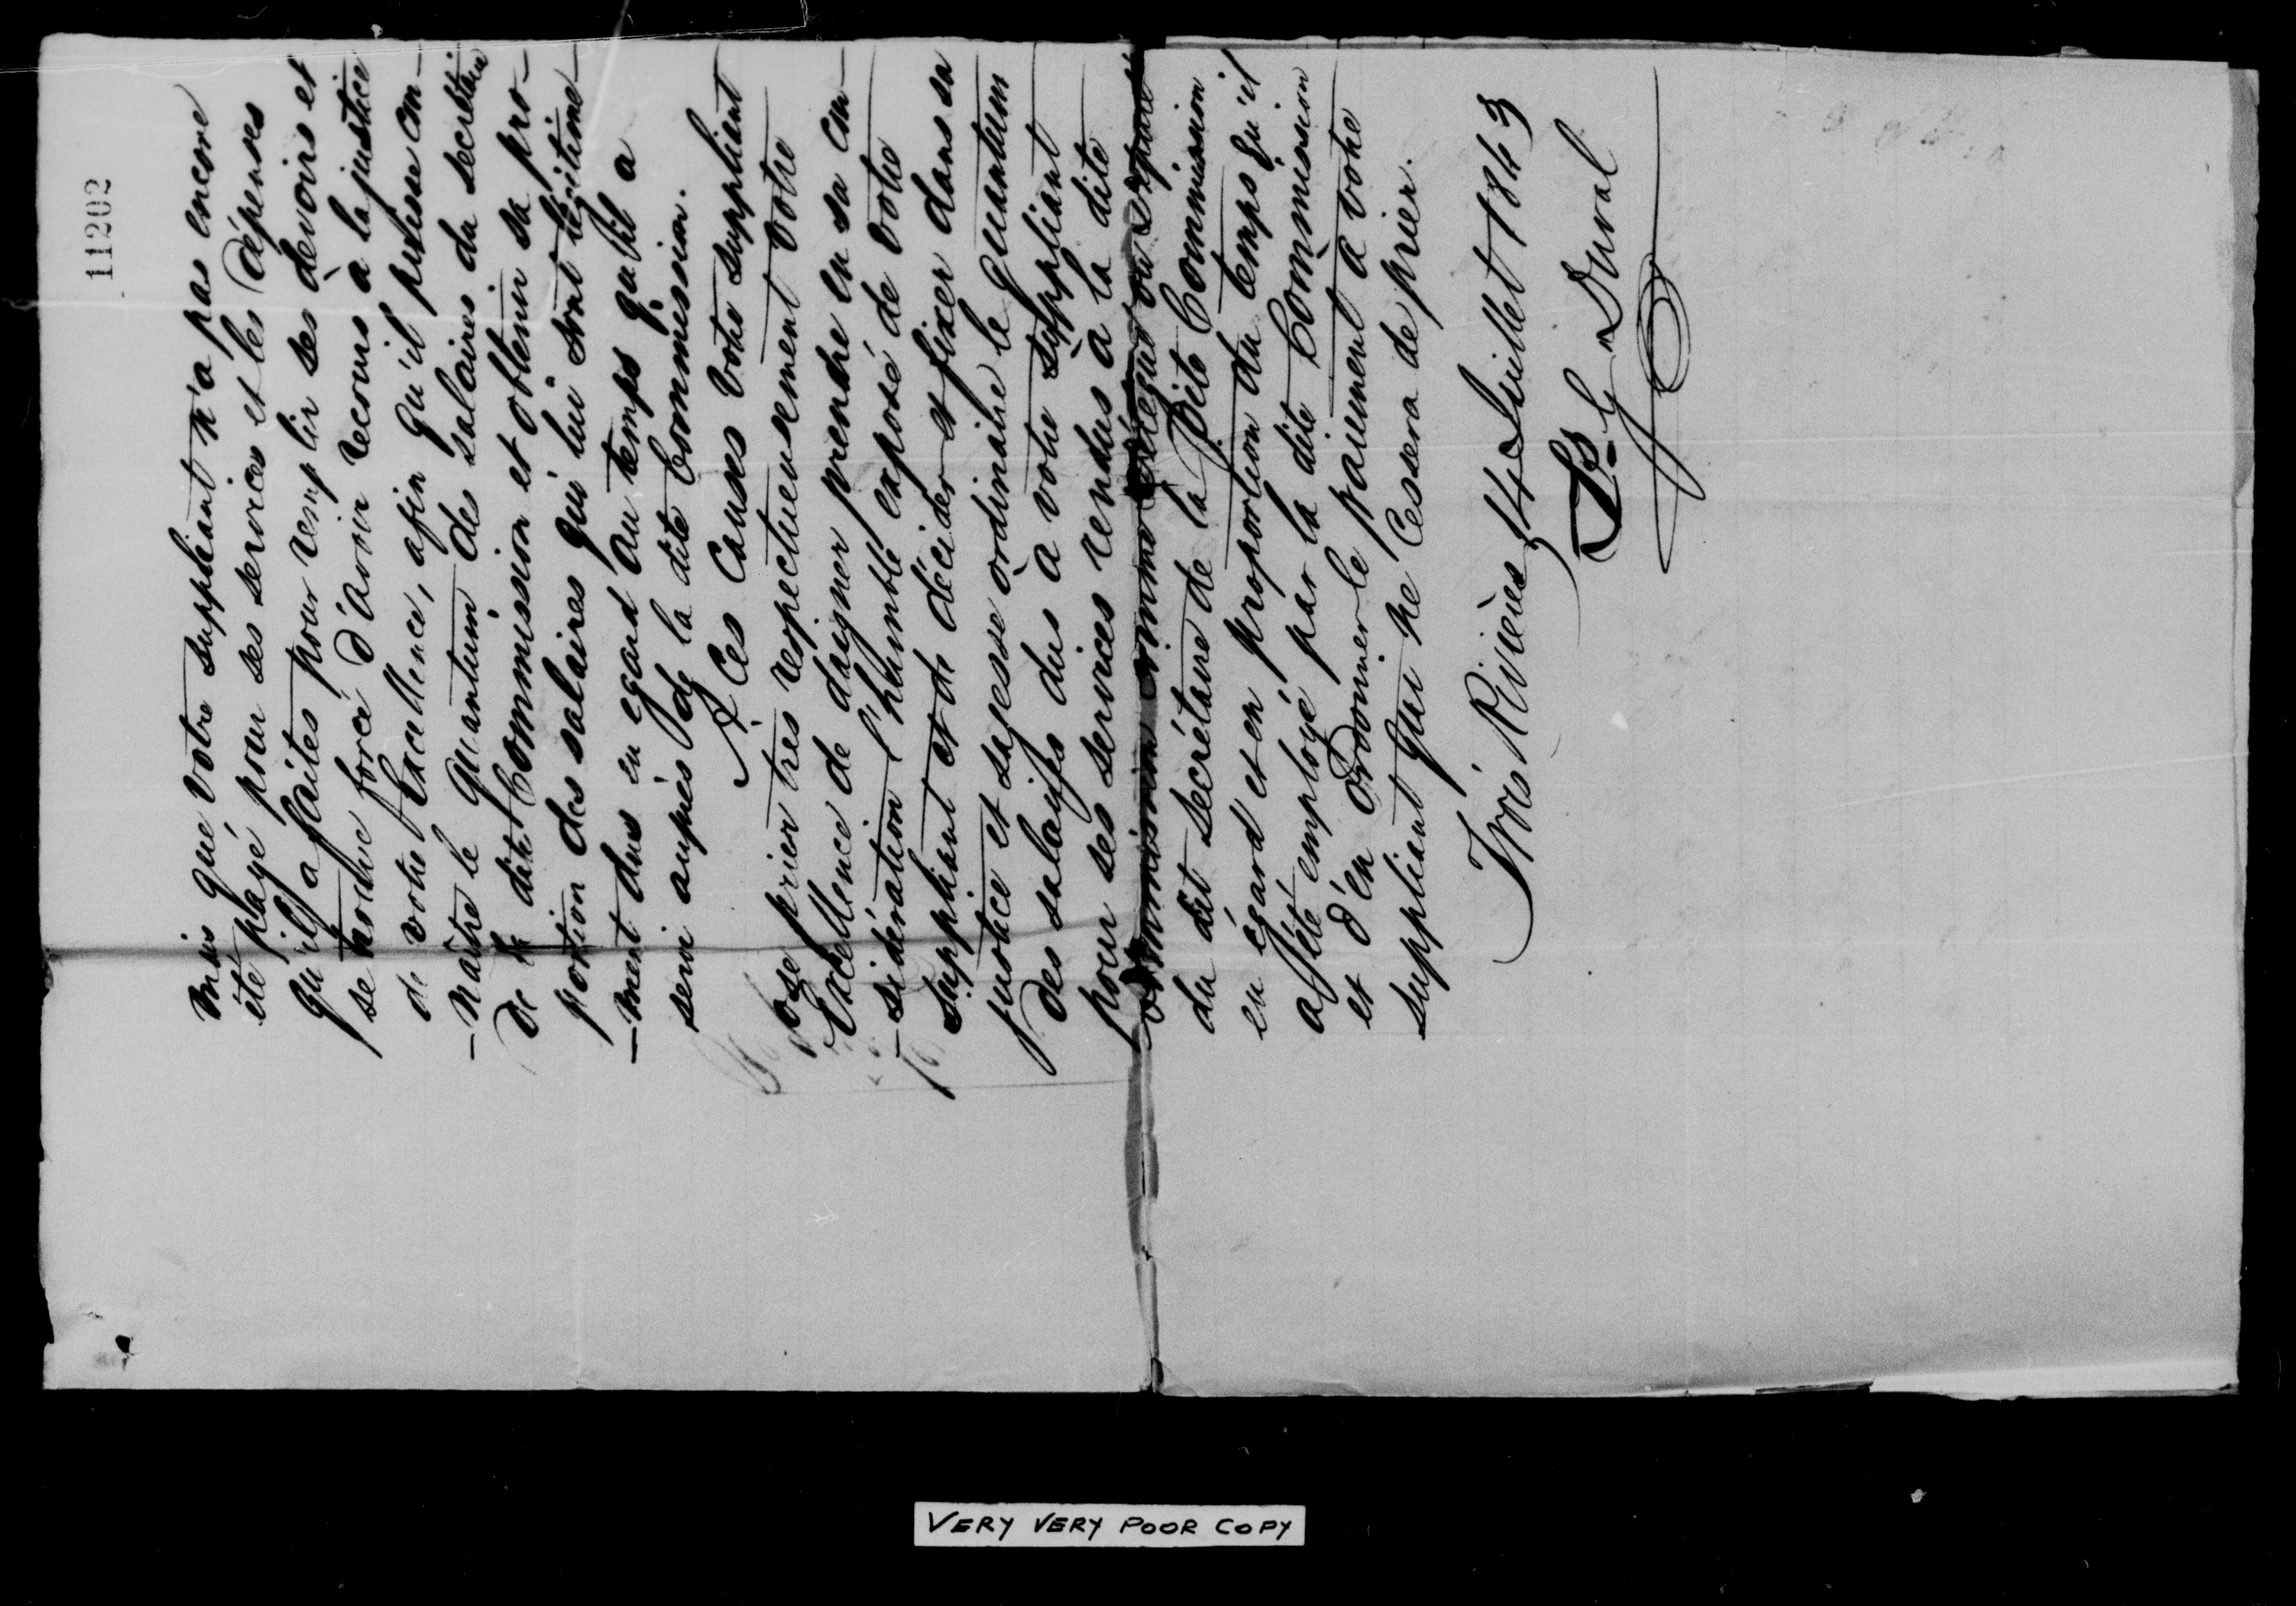 11202
mais que votre suppliant n'a pas encore
été payé pour ses services et les dépenses
qu'il a faites pour remplir ses devoirs et
se trouve forcé d'avoir recours à la justice
de votre Excellence, afin qu'il puisse con-
-naître le quantum des salaires du secrétaire
de la dite Commission et obtenir sa pro-
portion des salaires qui lui sont légitime-
-ment dus en egard au temps qu'il a
servi auprès de la dite Commission.
A Ces Causes votre suppliant
ose prier très respectueusement votre
Excellence de daigner prendre en sa con-
-sidération l'humble exposé de votre
suppliant et de décider et fixer dans sa
justice et sagesse ordinaire le quantum
des salaires dus à votre suppliant
pour ses services rendus à la dite
Commission comme
du dit secrétaire de la dite Commission
en égard et en proportion du temps qu'il
a été employé par la dite Commission
et d'en ordonner le paiement à votre
suppliant qui ne Cessera de prier.
Trois Rivières 14 Juillet 1843
Ls G Duval
VERY VERY POOR COPY